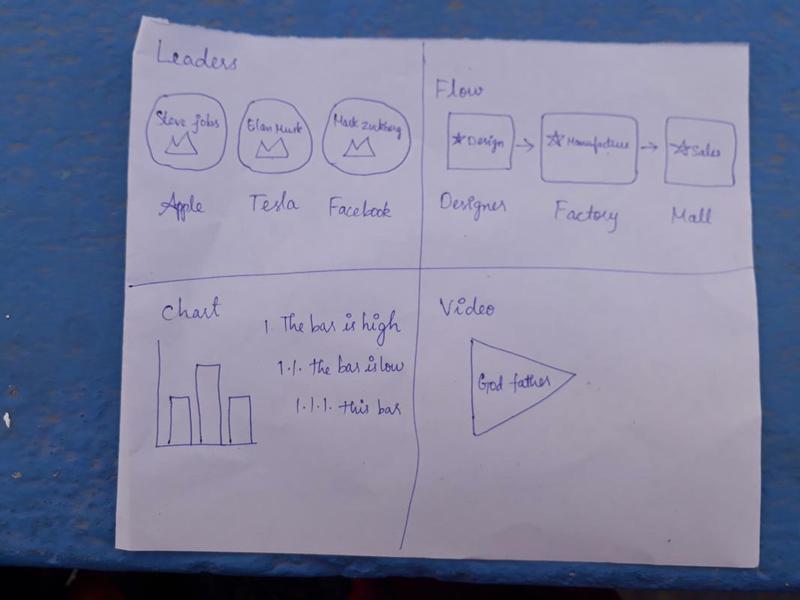 Leaders
Steve jobs
Elan Musk
Mark Zuckberg
Apple
Tesla
Facebook
Flow
Design
Manufacture
Sales
Designer
Factory
Mall
Chart
1. The bar is high
1.1. the bar is low
1.1.1. this bar
Video
God father